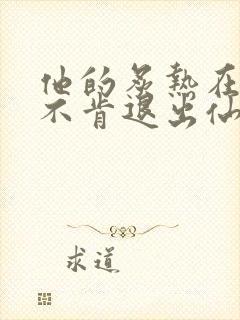 他的炙热在
不肯退出仙
求道